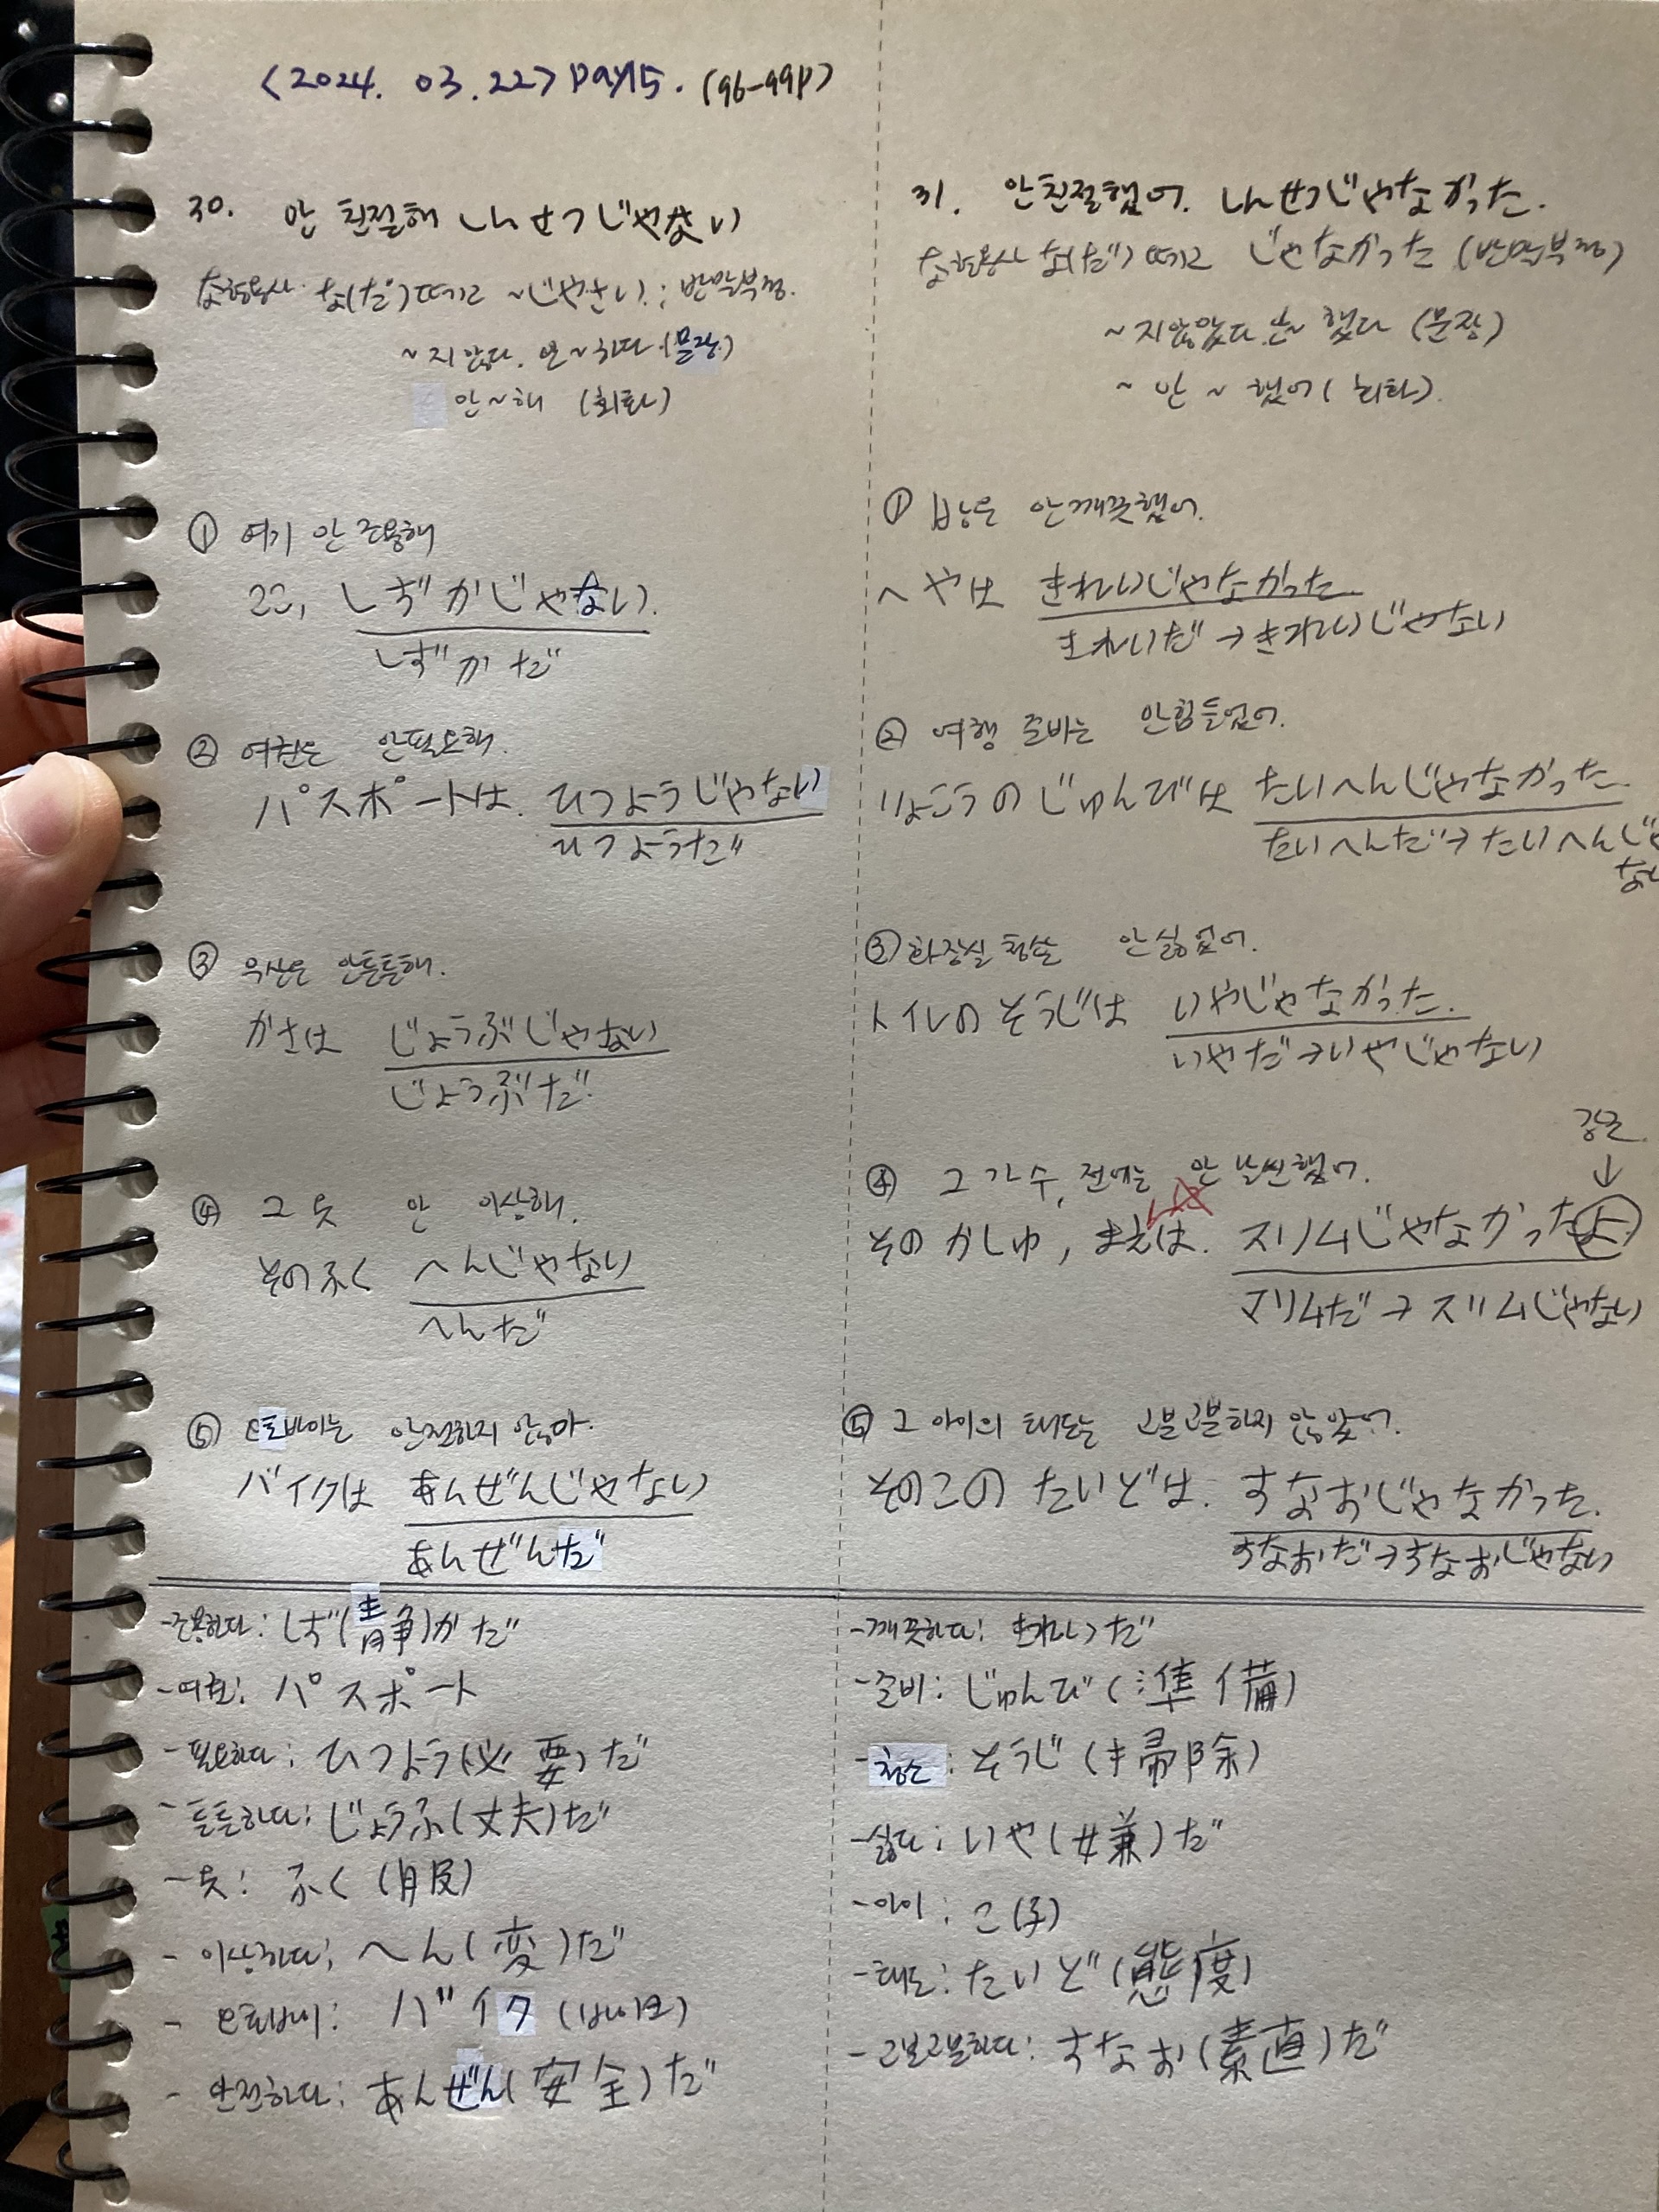 <2024. 03.22> Day15. (96-99p)
30. 안 친절해 しんせつじゃない
な형용사 な(だ)떼고 ~じゃない : 반말부정.
~지 않다. 안~하다 (문장)
안~해 (회화)
① 여기 안 조용해
ここ, しずかじゃない.
しずかだ
② 여권은 안필요해.
パスポートは. ひつようじゃない
ひつようだ
③ 우산은 안튼튼해.
かさは じょうぶじゃない
じょうぶだ
④ 그 옷 안 이상해.
そのふく へんじゃない
へんだ
⑤ 오토바이는 안전하지 않아.
バイクは あんぜんじゃない
あんぜんだ
-조용하다 : しず(静)かだ
-여권: パスポート
-필요하다 : ひつよう(必要)だ
-튼튼하다: じょうふ(丈夫)だ
-옷: ふく (服)
- 이상하다; へん(変)だ
- 오토바이: バイク (바이크)
- 안전하다: あんぜん(安全)だ
31. 안친절했어. しんせつじゃなかった.
な형용사 な(だ)떼고 じゃなかった (반말부정)
~지않았다 안~ 했다 (문장)
~ 안 ~ 했어 (회화).
① 방은 안깨끗했어.
へやは きれいじゃなかった.
きれいだ → きれいじゃない
② 여행 준비는 안힘들었어.
りょこうのじゅんびは たいへんじゃなかった
たいへんだ → たいへんじゃ
ない
③ 화장실 청소 안싫었어.
トイレのそうじは いやじゃなかった.
いやだ → いやじゃない
강조
↓
④ 그 가수, 전에는 안 날씬했어.
そのかしゅ, まえは. スリムじゃなかったよ
スリムだ → スリムじゃない
⑤ 그 아이의 태도는 고분고분하지 않았어.
そのこの たいどは. すなおじゃなかった.
すなおだ → すなおじゃない
-깨끗하다: きれいだ
-준비: じゅんび (準備)
-청소 : そうじ (掃除)
-싫다 : いや(嫌)だ
-아이 : こ(子)
-태도: たいど(態度)
-고분고분하다: すなお(素直)だ